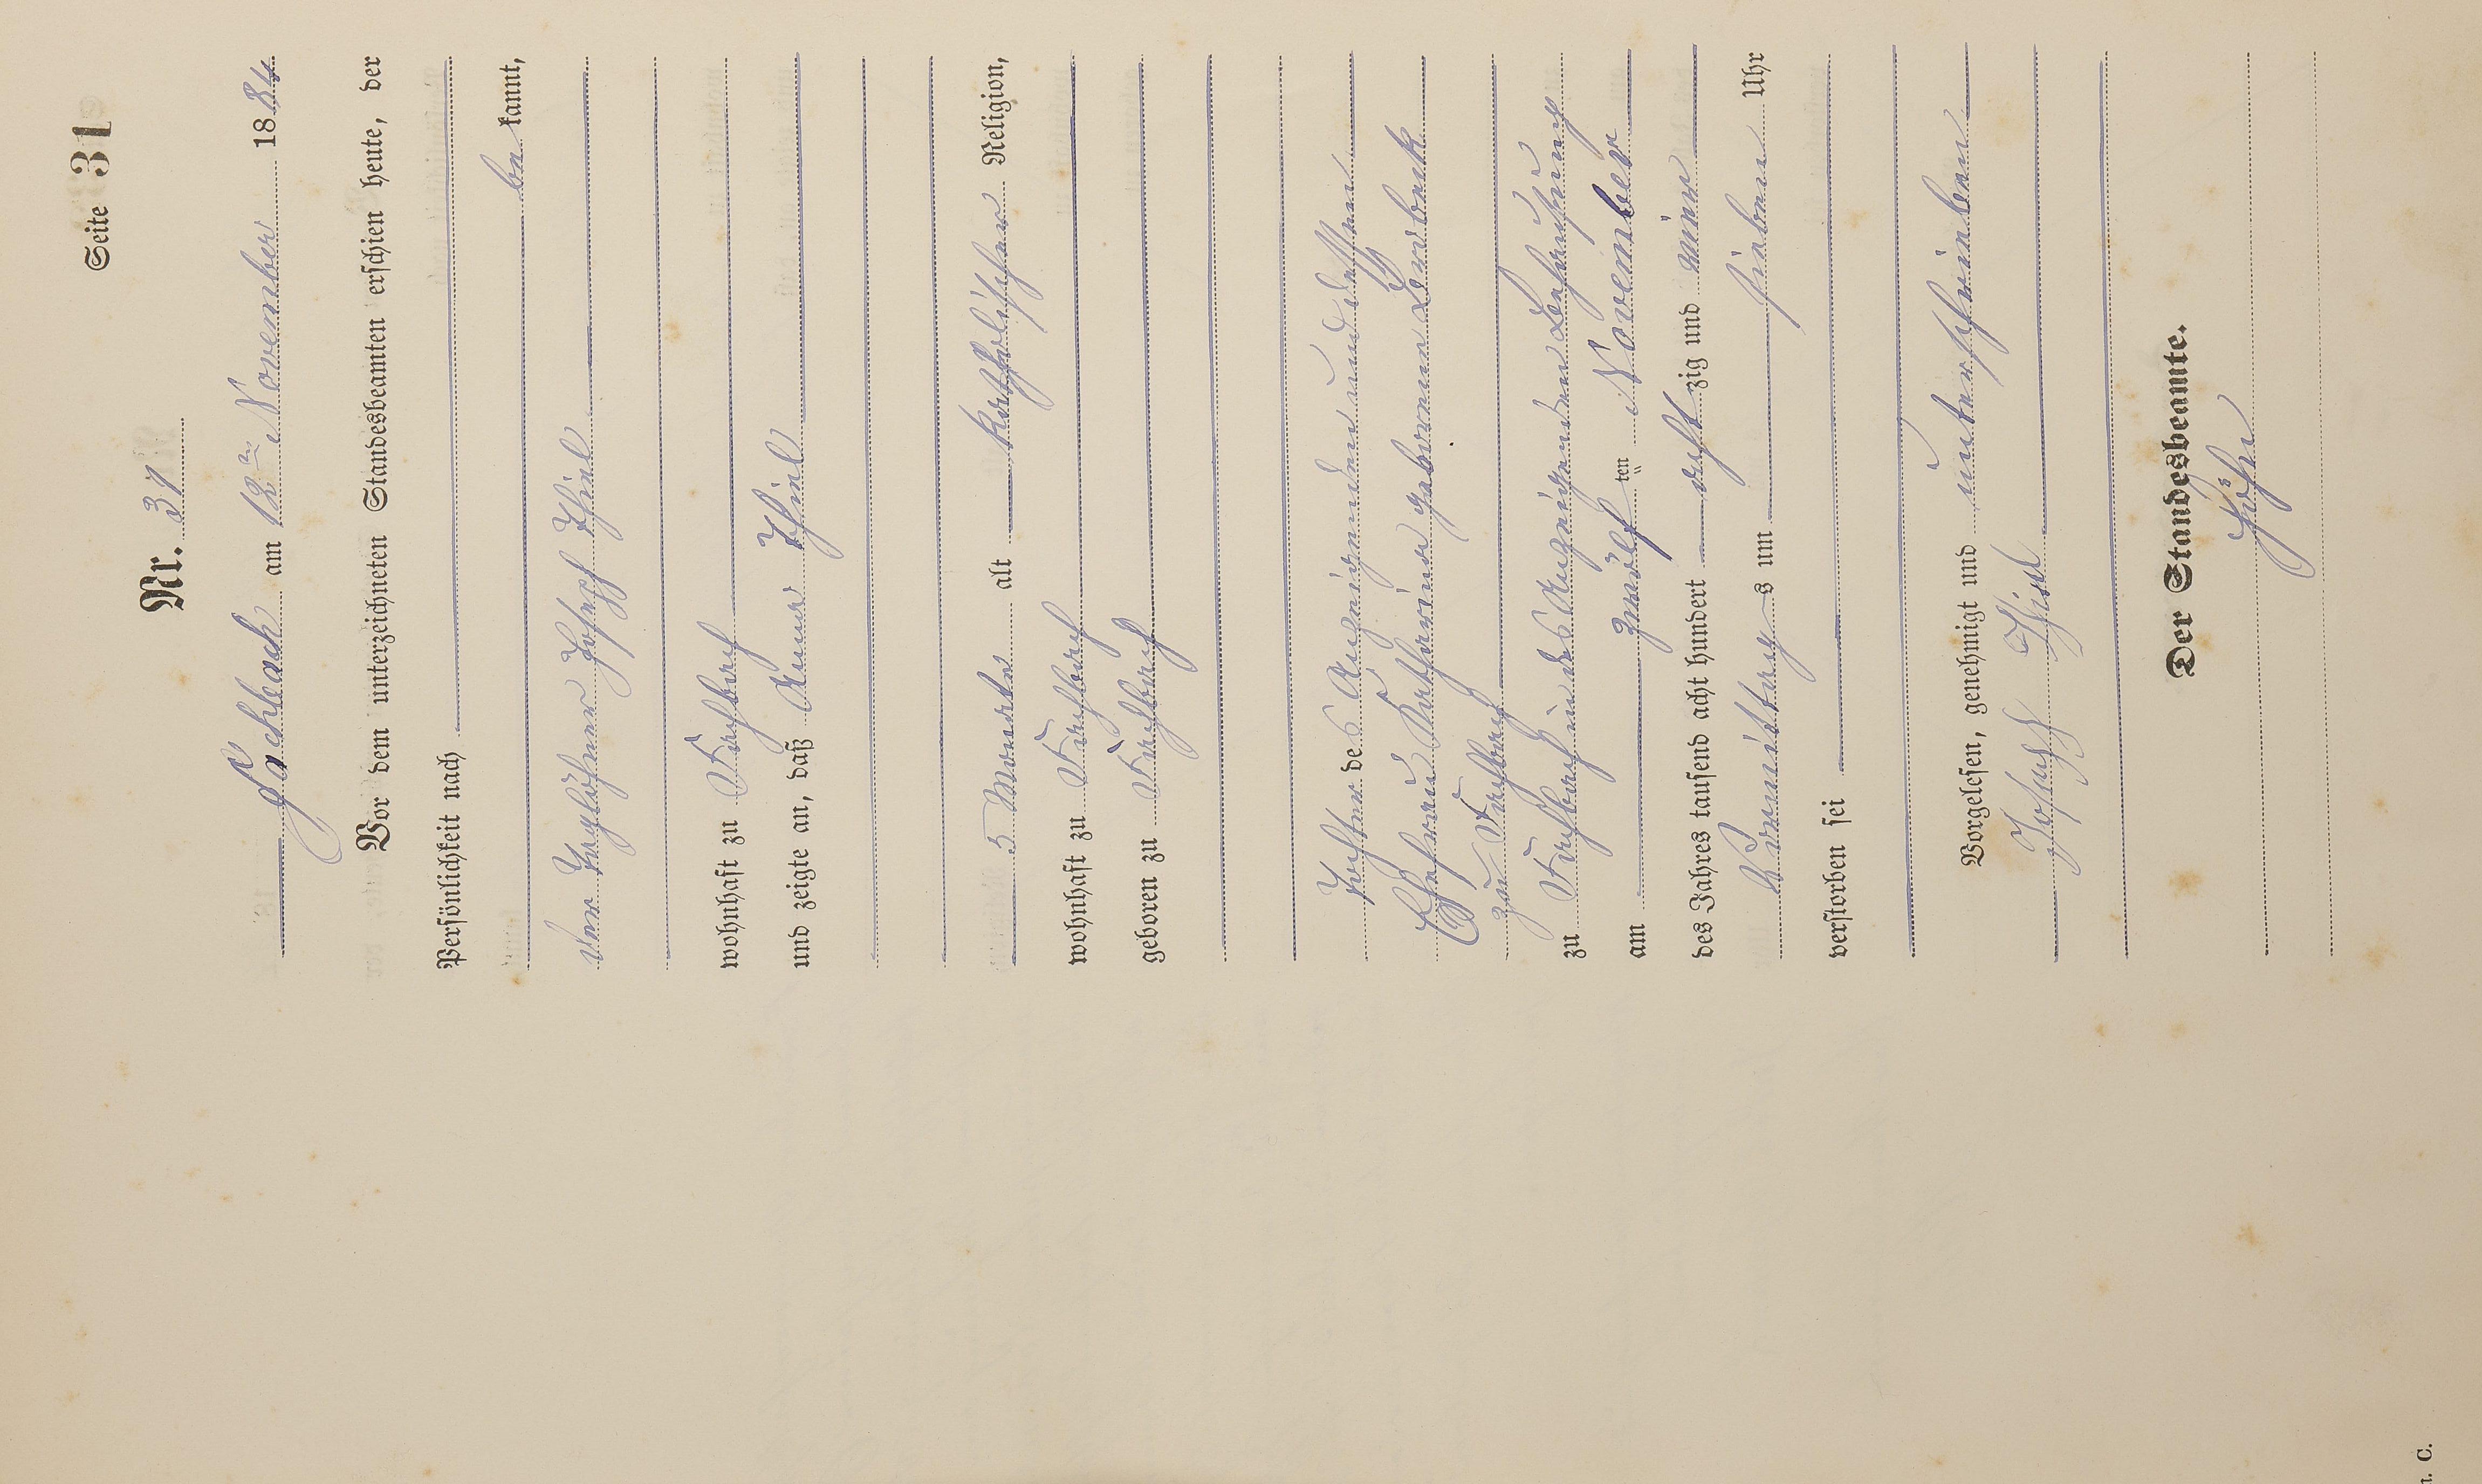 Seite 31
Nr. 31
Fachbach am 12n November 1884
Vor dem unterzeichneten Standesbeamten erschien heute, der
Persönlichkeit nach
be kannt,
der Taglöhner Joseph Thiel
wohnhaft zu Fachbach
und zeigte an, daß Anna Thiel
5 Monate alt katholischer Religion,
wohnhaft zu Fachbach
geboren zu Fachbach
Tochter des Anzeigenden und dessen
Ehefrau Katharina geborenen
zu Fachbach
zu Fachbach in des Anzeigenden Behausung
am zwölf ten November
des Jahres tausend acht hundert acht zig und vier
Vormittag s um sieben Uhr
verstorben sei
Vorgelesen, genehmigt und unterschrieben
Joseph Thiel
Der Standesbeamte.
n. C.